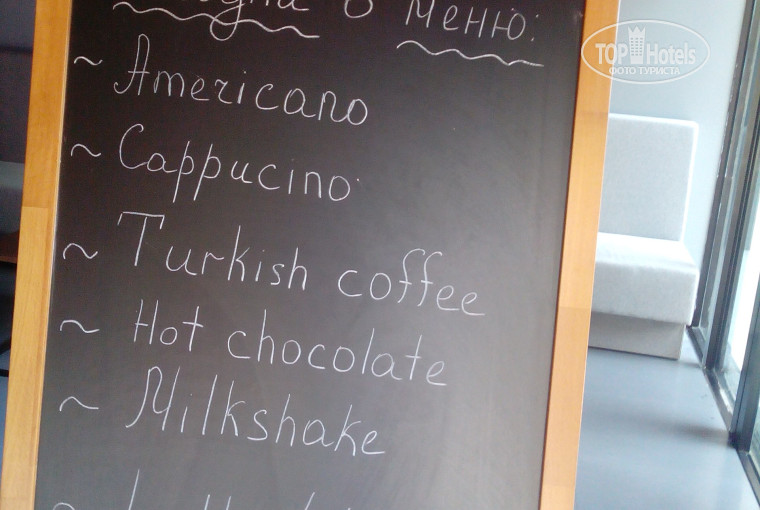 в Меню:
~ Americano
~ Cappucino
~ Turkish coffee
~ Hot chocolate
~ Milkshake
TOP Hotels
ФОТО ТУРИСТА